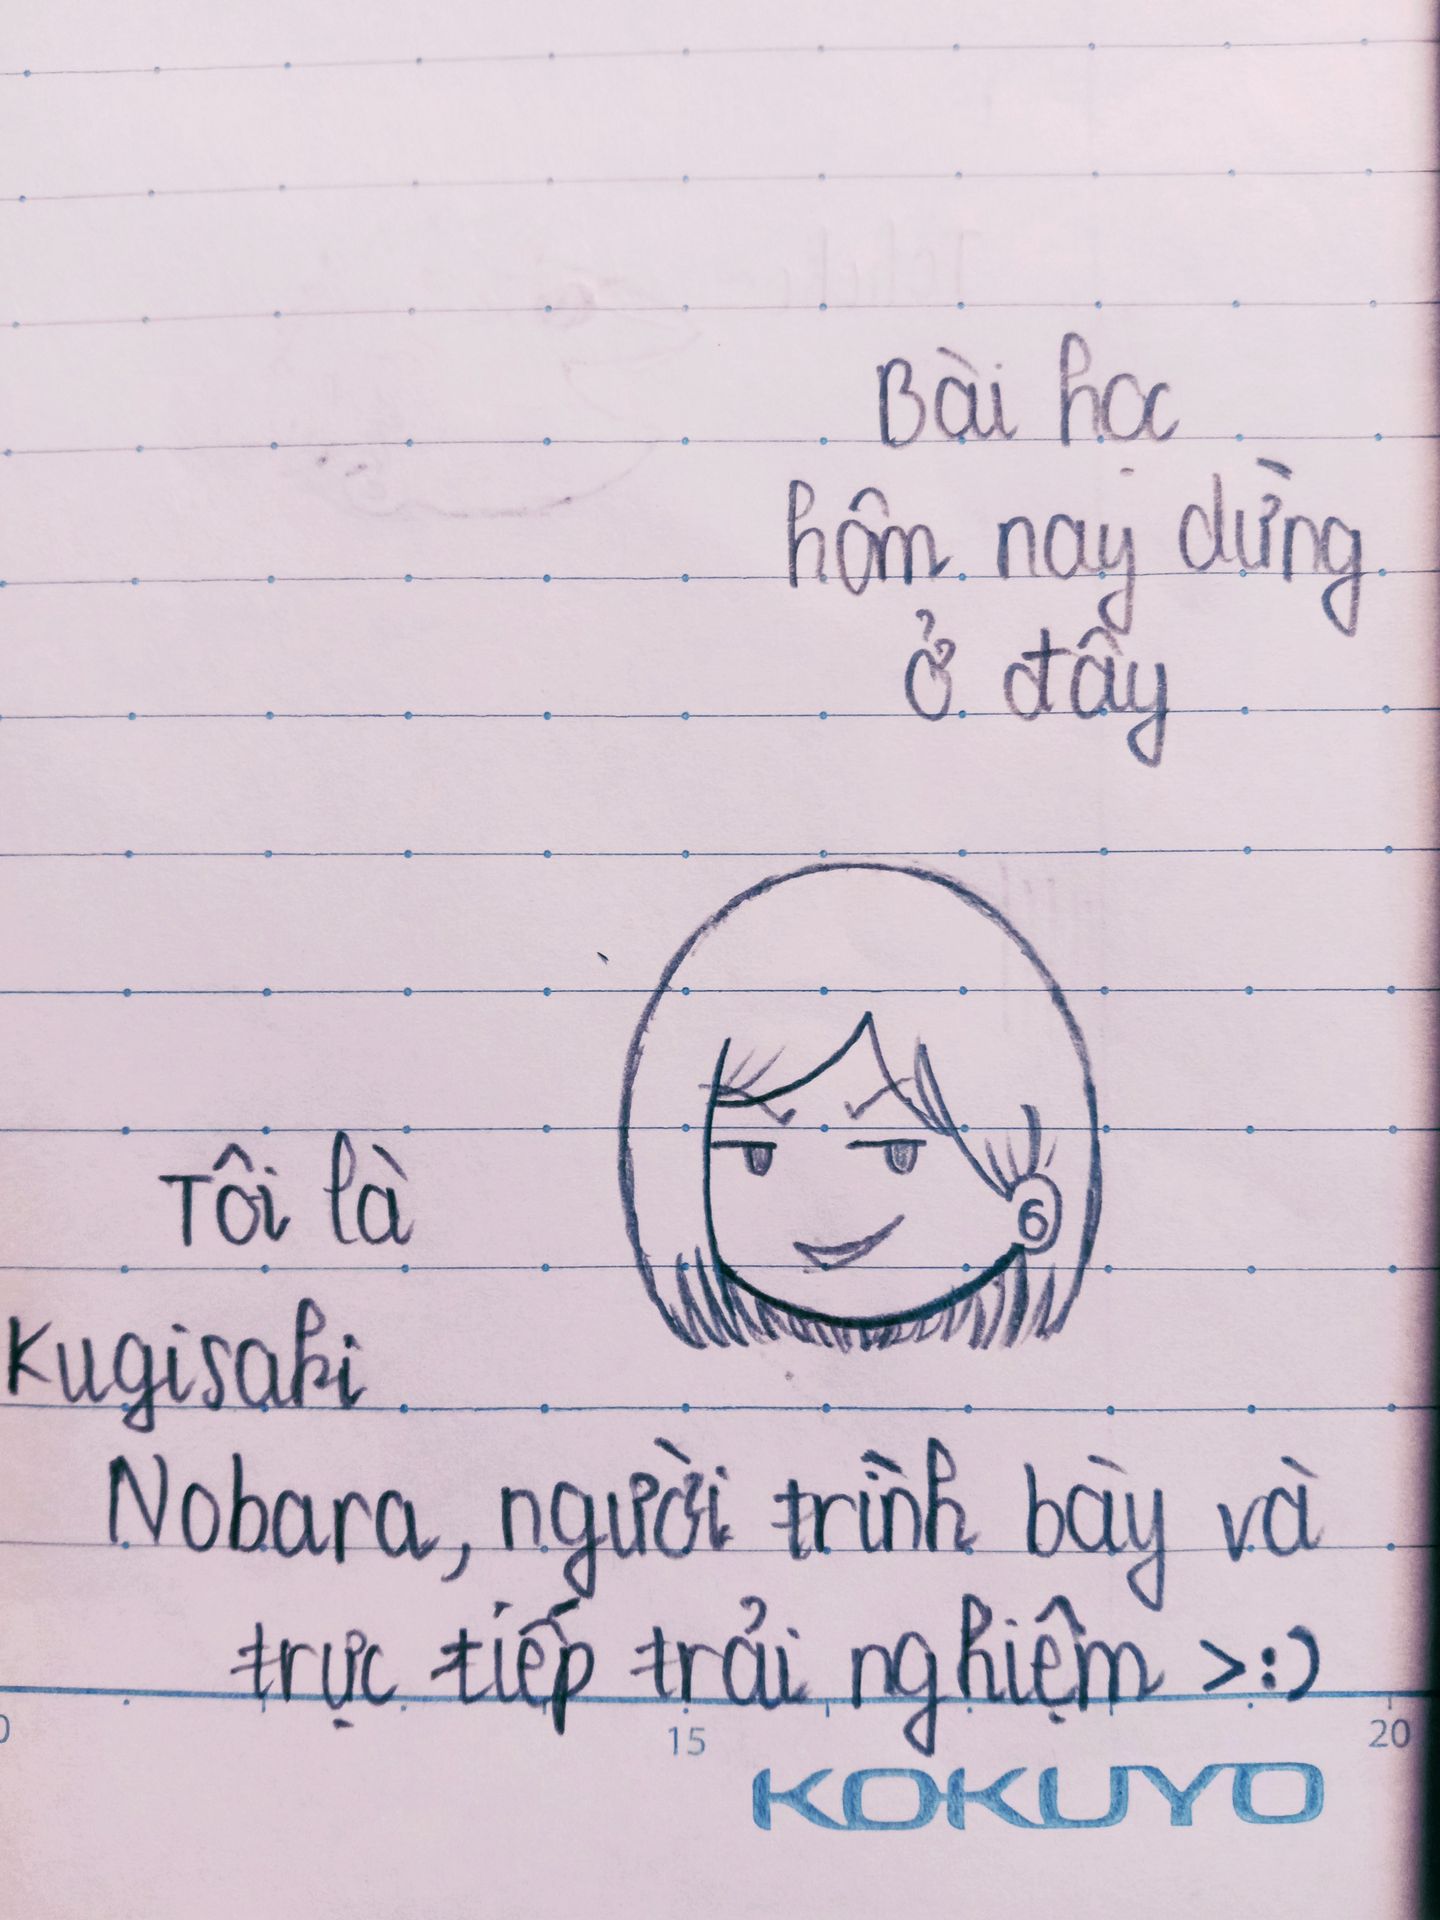 Bài học
hôm nay dừng
ở đây
6
Tôi là
Kugisaki
Nobara, người trình bày và
trực tiếp trải nghiệm >:)
15
20
KOKUYO